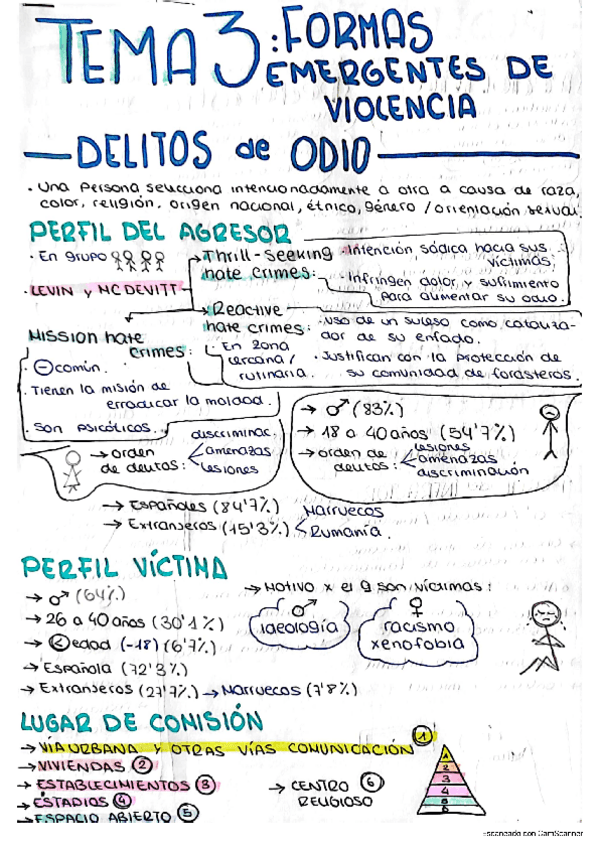 TEMA 3: FORMAS
EMERGENTES DE
VIOLENCIA
DELITOS de ODIO
· Una persona selecciona intencionadamente a otra a causa de raza,
color, religión, origen nacional, étnico, género / orientación sexual.
PERFIL DEL AGRESOR
· En grupo
· LEVIN y MCDEVITT
→ Thrill-seeking
hate crimes:
· Intención sádica hacia sus
víctimas.
· Infringen dolor y sufrimiento
para aumentar su odio.
→ Reactive
hate crimes:
· Uso de un suceso como cataliza-
dor de su enfado.
· Justifican con la protección de
su comunidad de forasteros.
↳ En zona
cercana /
rutinaria.
Mission hate
crimes:
· ⊖ común.
· Tienen la misión de
erradicar la maldad.
· Son psicóticos.
→ orden
de delitos:
discriminac.
amenazas
lesiones
→ ♂ (83%)
→ 18 a 40 años (54'7%)
→ orden de
delitos:
lesiones
amenazas
discriminación
→ Españoles (84'7%)
→ Extranjeros (15'3%)
Marruecos
Rumanía.
PERFIL VÍCTIMA
→ ♂ (64%)
→ 26 a 40 años (30'1%)
→ < edad (-18) (6'7%)
→ Española (72'3%)
→ Extranjeros (27'7%) → Marruecos (7'8%)
→ Motivo x el q son víctimas:
♂
ideología
♀
racismo
xenofobia
LUGAR DE COMISIÓN
→ VÍA URBANA Y OTRAS VÍAS COMUNICACIÓN 1
→ VIVIENDAS 2
→ ESTABLECIMIENTOS 3
→ ESTADIOS 4
→ ESPACIO ABIERTO 5
→ CENTRO 6
RELIGIOSO
1
2
3
4
5
6
Escaneado con CamScanner